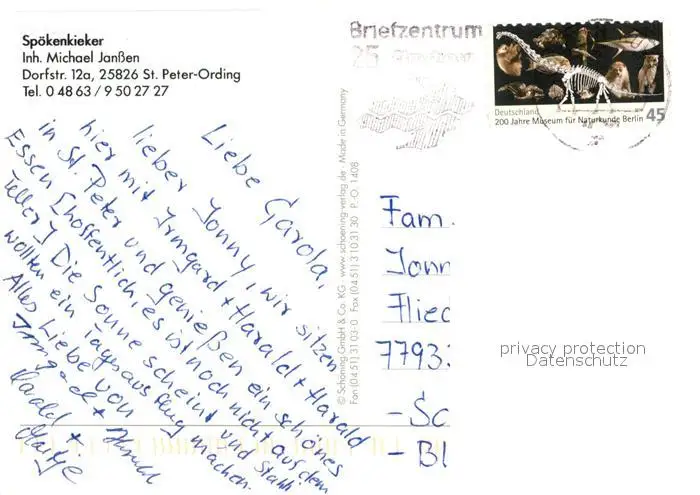 Spökenkieker
Inh. Michael Janßen
Dorfstr. 12a, 25826 St. Peter-Ording
Tel. 0 48 63 / 9 50 27 27
Liebe Garola,
lieber Jonny, wir sitzen
hier mit Irmgard + Harald + Harald
in St. Peter und genießen ein schönes
Essen (hoffentlich, es ist noch nicht auf dem
Teller) Die Sonne scheint und
wollten ein Tagesausflug machen.
Alles Liebe von
Harald +
© Schöning GmbH & Co. KG · www.schoening-verlag.de · Made in Germany
Fon (0451) 3103-0 Fax (0451) 3103130 P.·O. 1408
Briefzentrum
25
Deutschland
200 Jahre Museum für Naturkunde Berlin 45
Fam.
Jonn
Flied
7793
- Sc
- Bl
privacy protection
Datenschutz